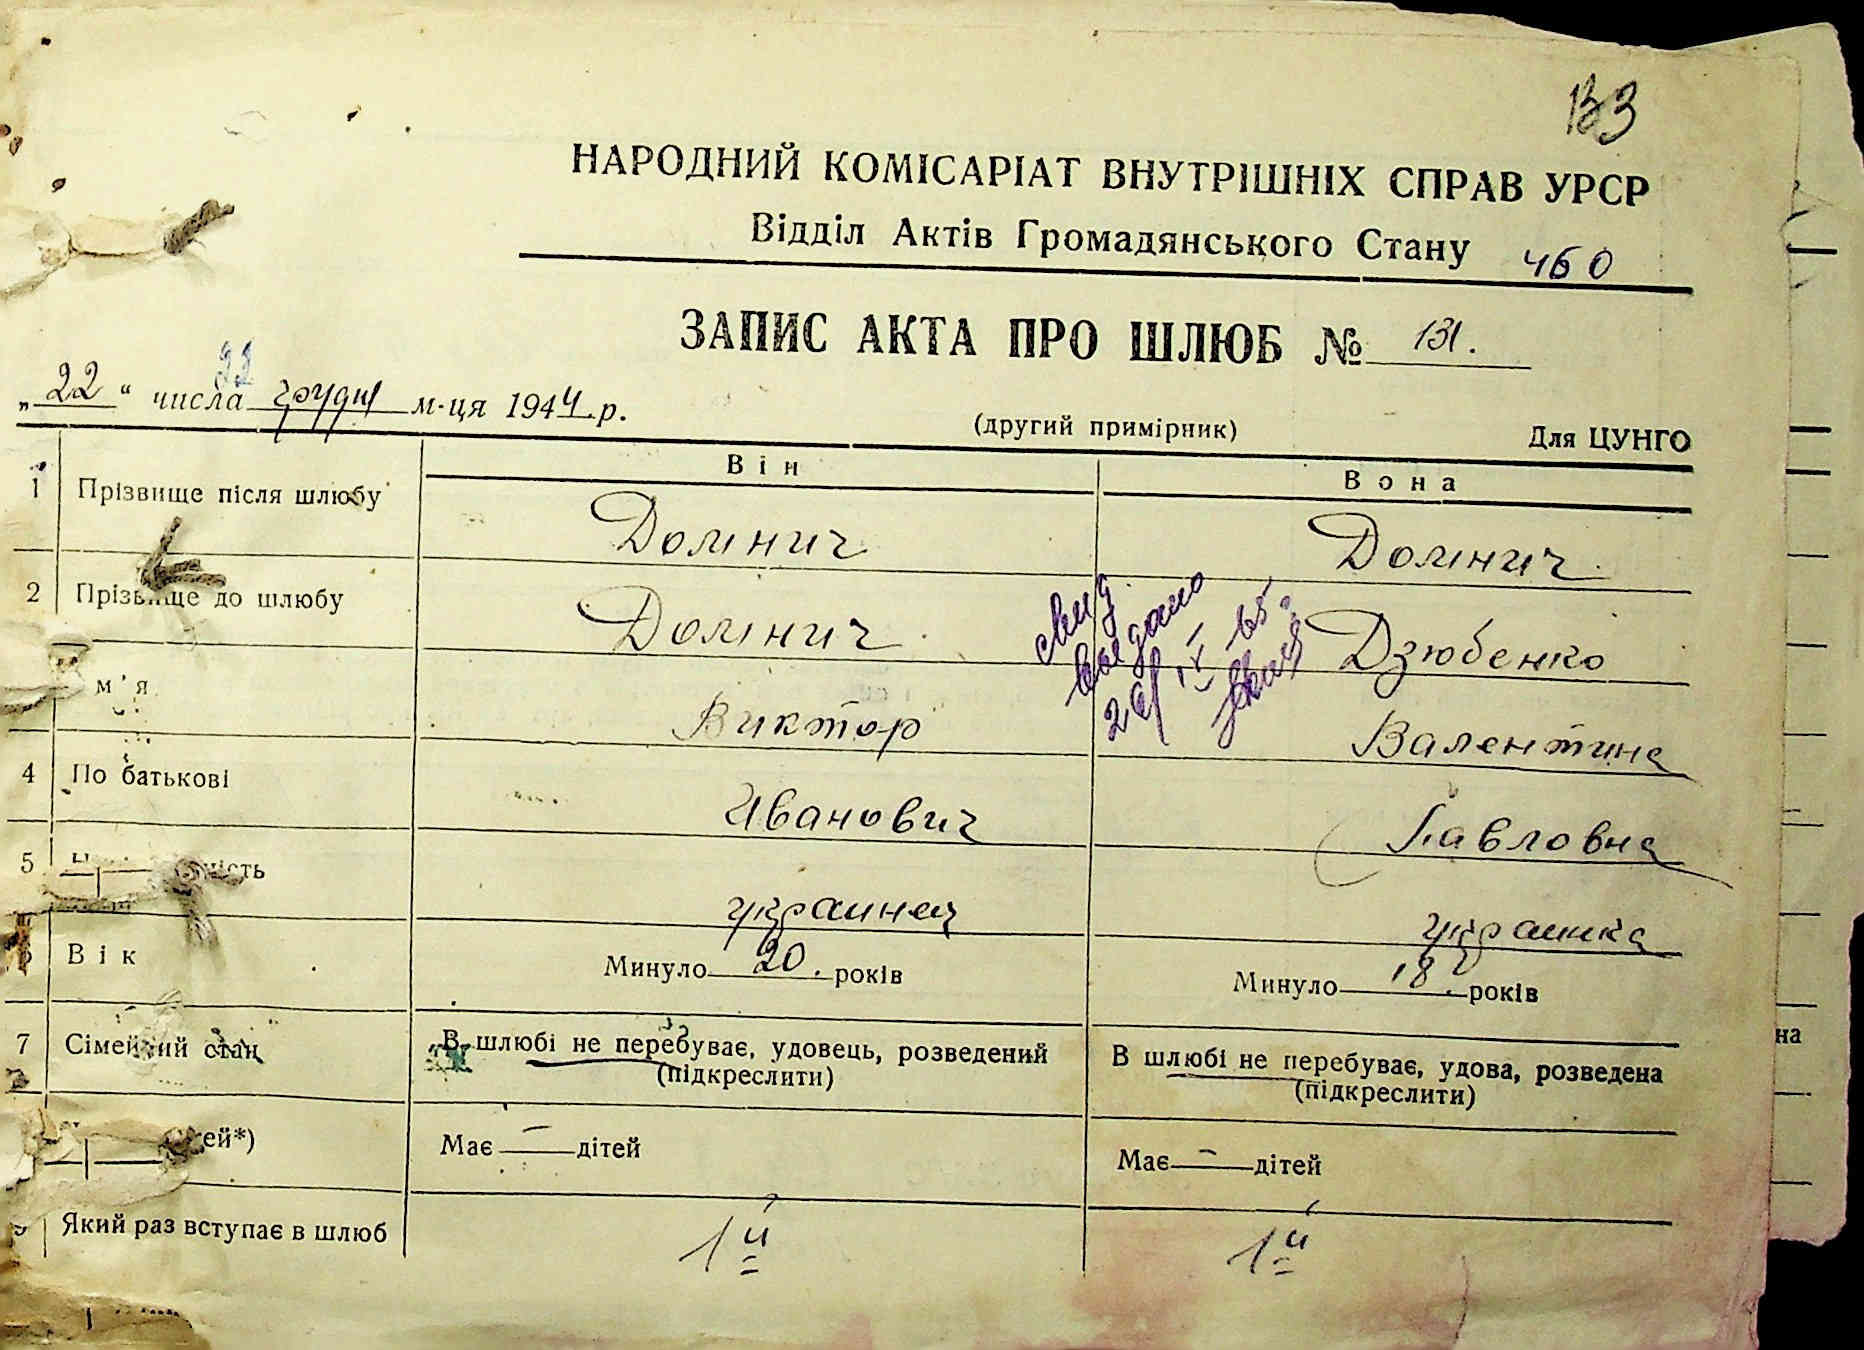 133
НАРОДНИЙ КОМІСАРІАТ ВНУТРІШНІХ СПРАВ УРСР
Відділ Актів Громадянського Стану 460
ЗАПИС АКТА ПРО ШЛЮБ № 131.
22
„22“ числа грудня м-ця 1944 р.
(другий примірник) Для ЦУНГО
Він Вона
1 Прізвище після шлюбу Долінич Долінич
2 Прізвище до шлюбу Долінич Дзюбенко
свид
выдано
26/IV 65
м'я Виктор Валентина
4 По батькові Иванович Павловна
5 ність украинец украинка
Вік Минуло 20. років Минуло 18. років
7 Сімейний стан В шлюбі не перебуває, удовець, розведений В шлюбі не перебуває, удова, розведена
(підкреслити) (підкреслити)
ей*) Має — дітей Має — дітей
9 Який раз вступає в шлюб 1й 1й